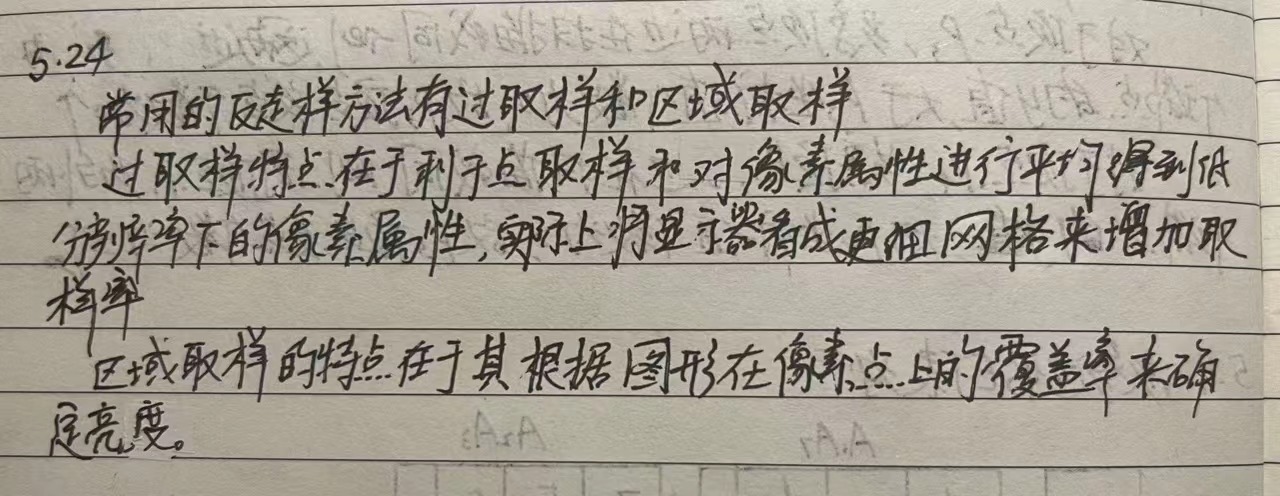 5.24
常用的反走样方法有过取样和区域取样
过取样特点在于利于点取样和对像素属性进行平均得到低
分辨率下的像素属性,实际上将显示器看成更细网格来增加取
样率
区域取样的特点在于其根据图形在像素点上的覆盖率来确
定亮度。